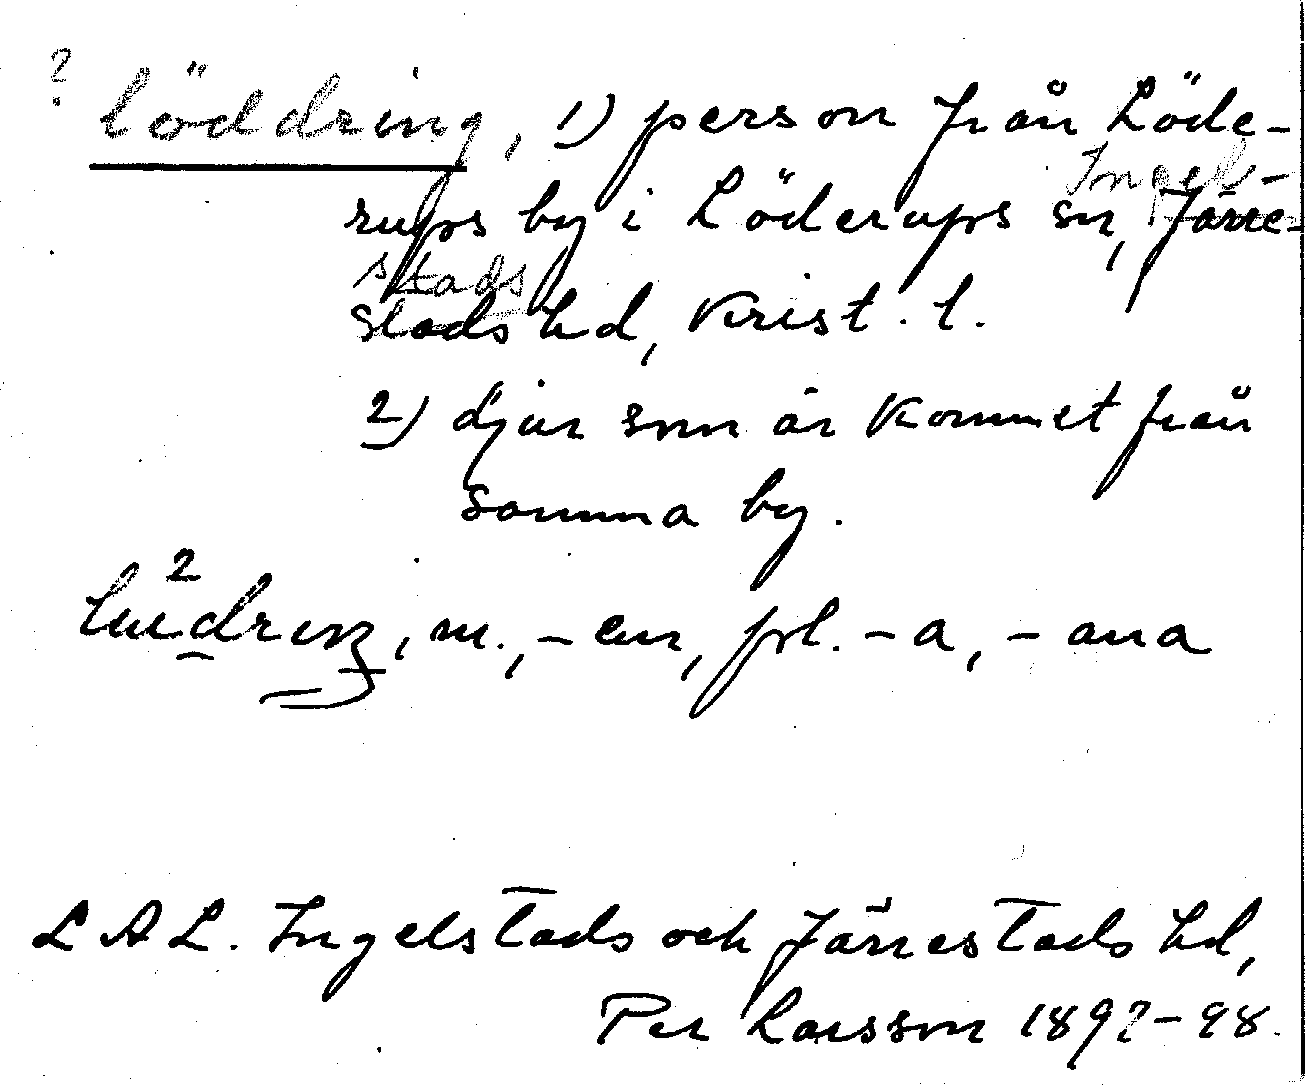 ? löddring, 1) person från Löde-
Ingel-
rups by i Löderups sn, Järre-
stads
stads hd, Krist. l.
2) djur som är kommet från
samma by.
m., -en, pl. -a, -ana
L A L. Ingelstads och Järrestads hd,
Per Larsson 1897-98.